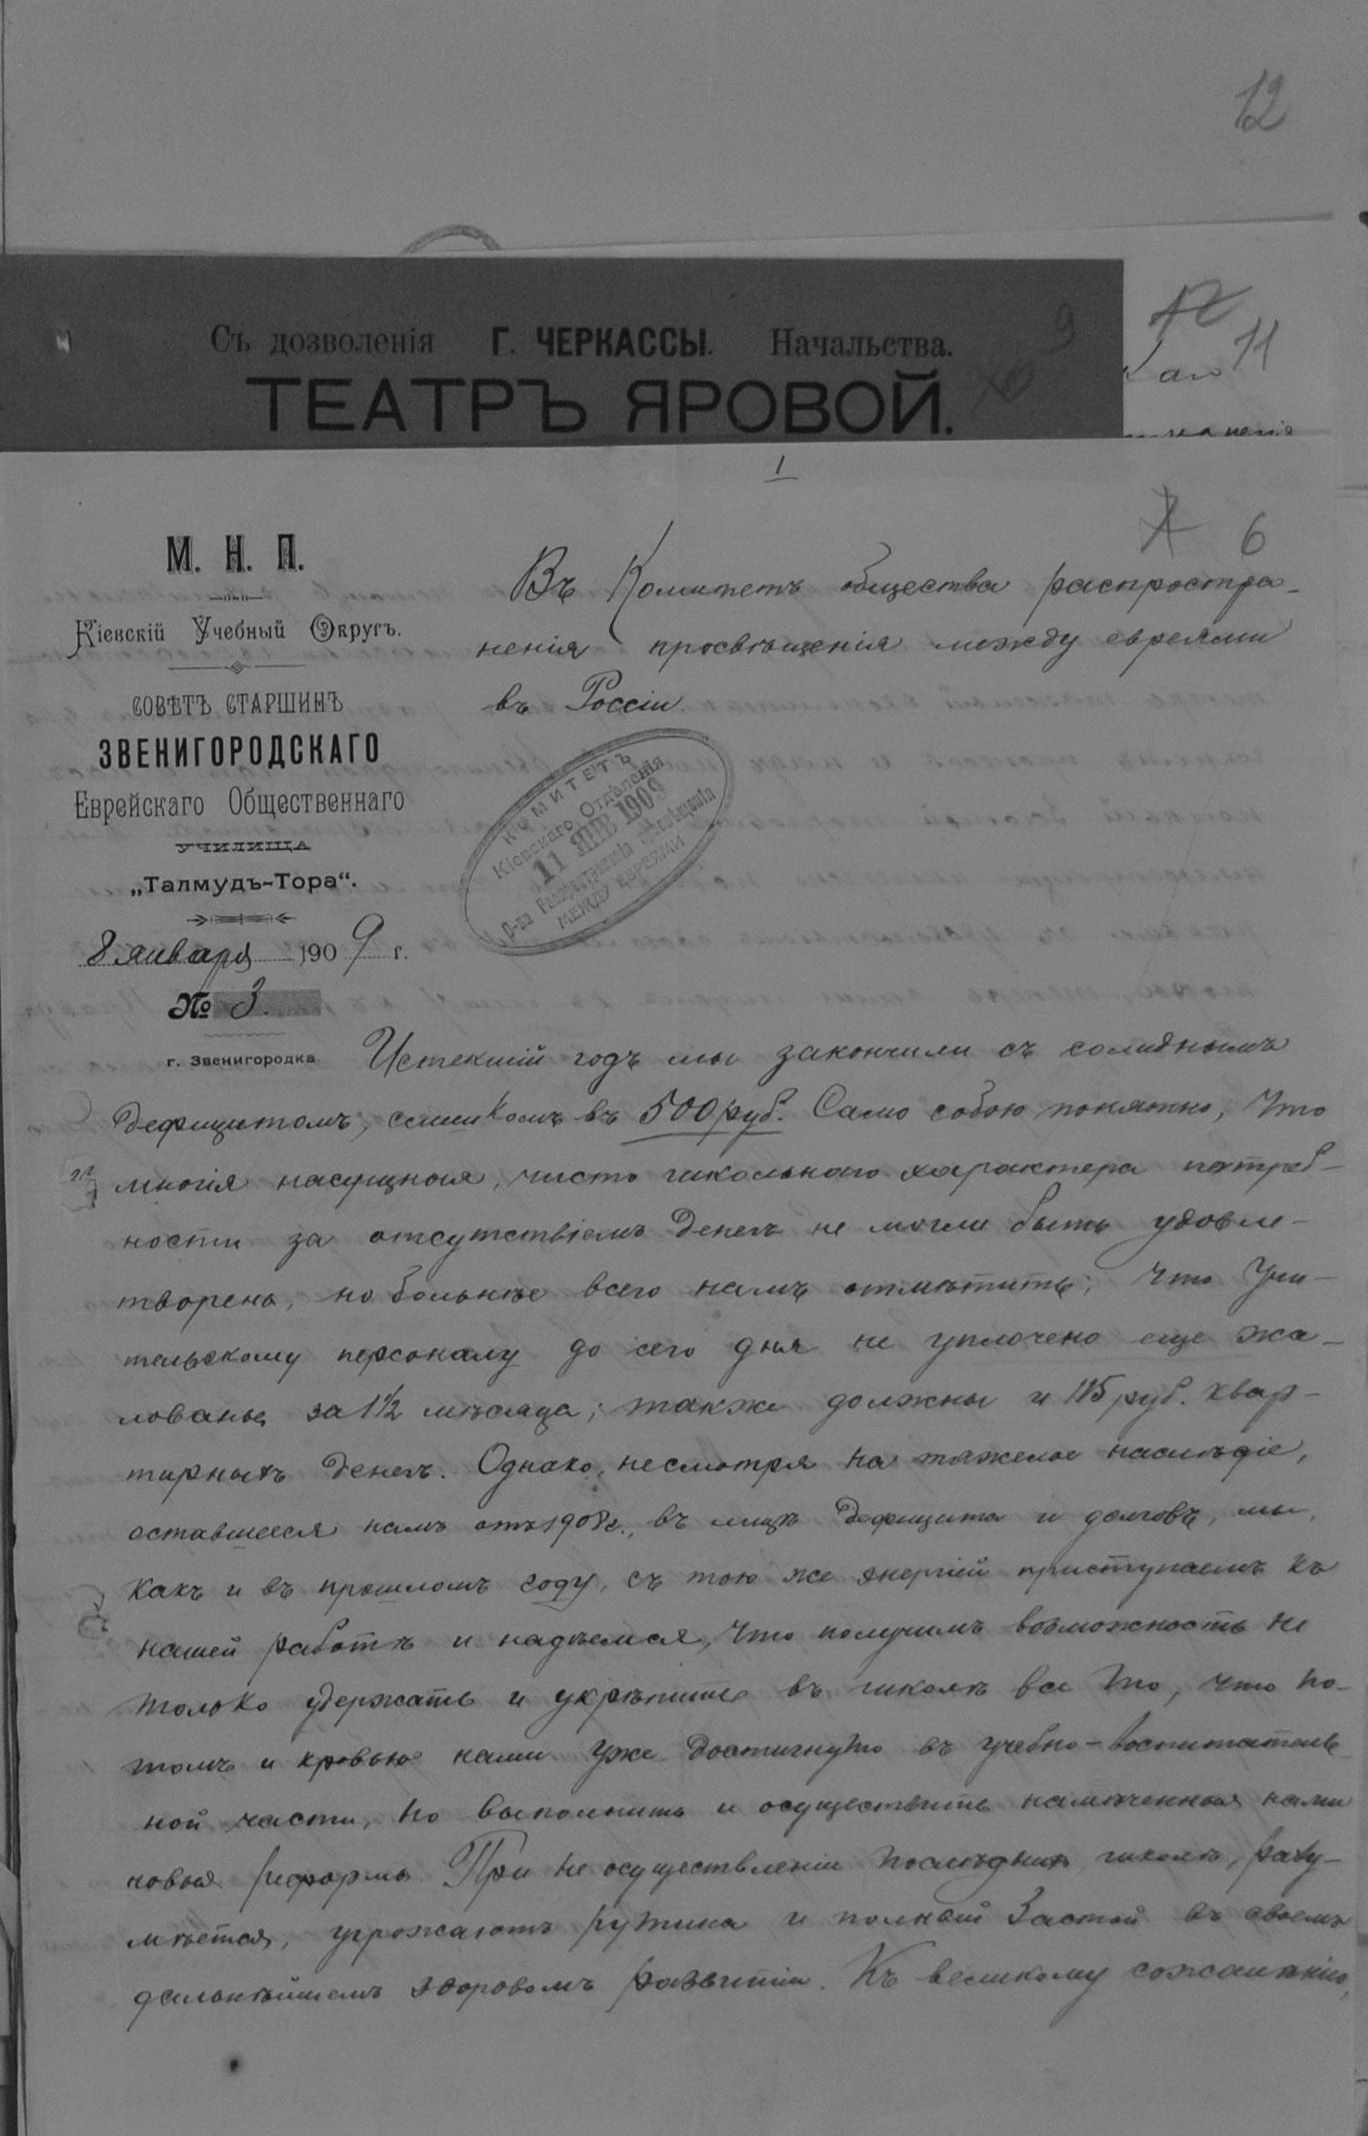 12
Съ дозволенія Г. ЧЕРКАССЫ. Начальства.
9
ТЕАТРЪ ЯРОВОЙ.
12
11
1
6
М. Н. П.
Кіевскій Учебный Округъ.
СОВѢТЪ СТАРШИНЪ
ЗВЕНИГОРОДСКАГО
Еврейскаго Общественнаго
УЧИЛИЩА
„Талмудъ-Тора“.
8 января 1909 г.
№ 3.
г. Звенигородка
Въ Комитетъ общества распростра-
ненія просвѣщенія между евреями
въ Россіи
КОМИТЕТЪ
Кіевскаго Отдѣленія
11 ЯНВ 1909
О-ва Распространенія Просвѣщенія
МЕЖДУ ЕВРЕЯМИ
Истекшій годъ мы закончили съ солиднымъ
дефицитомъ, слишкомъ въ 500 руб. Само собою понятно, что
многія насущныя, чисто школьнаго характера потреб-
ности за отсутствіемъ денегъ не могли быть удовле-
творены, но больнѣе всего намъ отмѣтить, что учи-
тельскому персоналу до сего дня не уплочено еще жа-
лованье за 1½ мѣсяца; также должны и 115 руб. квар-
тирныхъ денегъ. Однако, несмотря на тяжелое наслѣдіе,
оставшееся намъ отъ 1908 г., въ лицѣ дефицита и долговъ, мы,
какъ и въ прошломъ году, съ тою же энергіей приступаемъ къ
нашей работѣ и надѣемся, что получимъ возможность не
только удержать и укрѣпить въ школѣ все то, что по-
томъ и кровью нами уже достигнуто въ учебно-воспитатель-
ной части, но выполнить и осуществить намѣченныя нами
новыя реформы. При не осуществленіи послѣднихъ школѣ, разу-
мѣется, угрожаютъ рутина и полный застой въ своемъ
дальнѣйшемъ здоровомъ развитіи. Къ великому сожалѣнію,